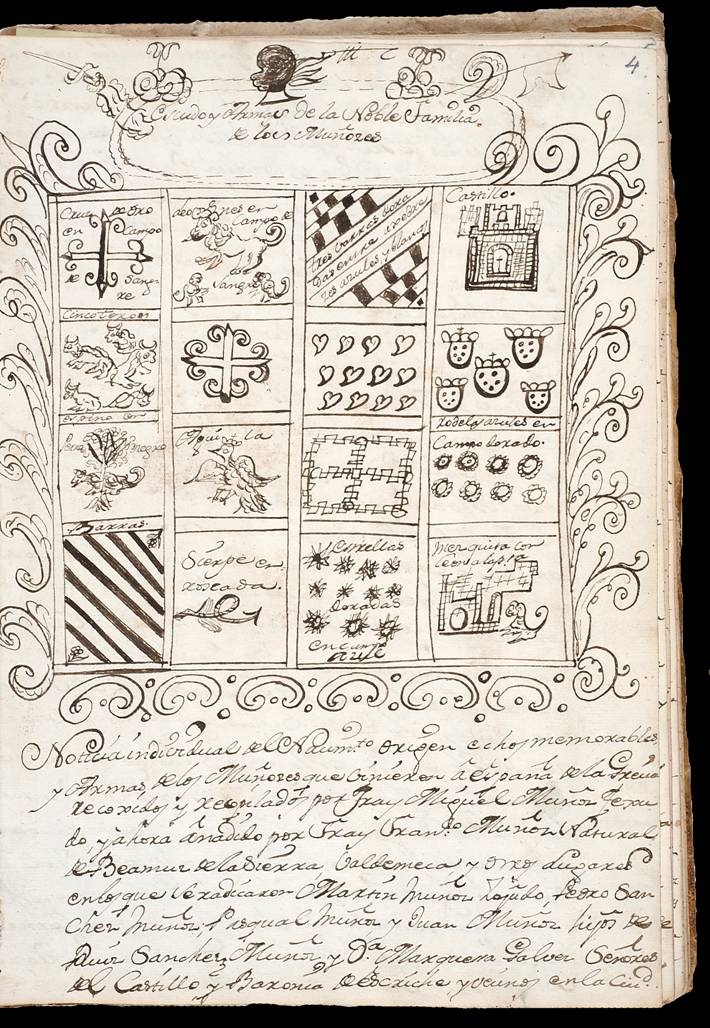 4.
Escudo y Armas de la Noble Familia
de los Muñozes
Cruz de Oro
en Campo
de Sangre
dos Leones en
Campo de
Sangre
tres barras doradas
entre axedrezes
azules y blancos
Castillo.
Cinco toros
espino con
perro negro
Aguila
rodelas azules en
Campo dorado.
Barras.
Sierpe en
roscada.
Estrellas
doradas
en campo
azul
Mezquita con
leon a la pta
Noticia individual del Nacimto origen echos memorables,
y Armas de los Muñozes que vinieron à España de la Grecia
recoxidos y recopilados por Fray Miguel Muñoz Texa
do, y ahora añadido por Fray Franco Muñoz Natural
de Beamud de la Sierra, Valdemeca y otros Lugares
en los que se radicaron Martin Muñoz Pedro San
chez Muñoz, Pasqual Muñoz y Juan Muñoz hijos de
Ruiz Sanchez Muñoz, y Da Marquesa Galvez Señores
del Castillo y Baronia de Escriche, y vecinos en la Ciud.